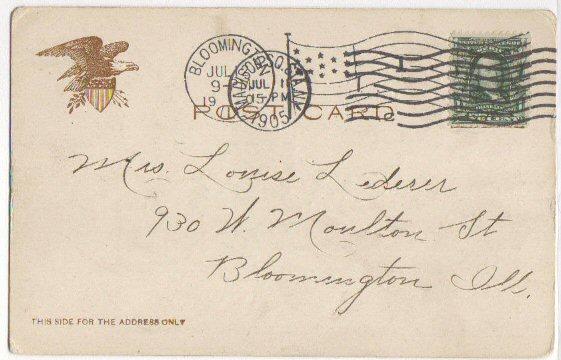 BLOOMINGT
JUL
9-
19
JUL
15-PM
1905
POST CARD
Mrs. Louise Lederer
930 W. Moulton St
Bloomington Ill.
THIS SIDE FOR THE ADDRESS ONLY